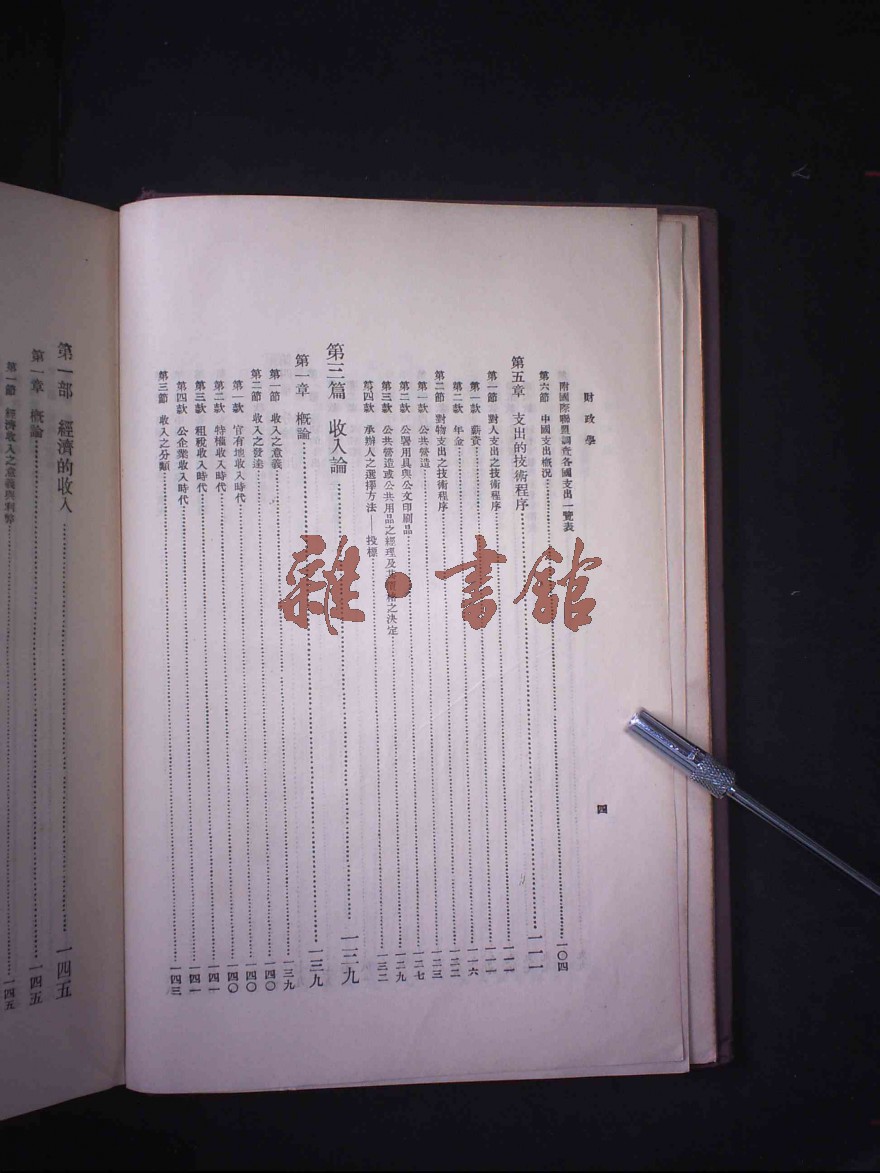 財政學
四
附國際聯盟調查各國支出一覽表
第六節 中國支出概況……一〇四
第五章 支出的技術程序……一一一
第一節 對人支出之技術程序……一一一
第一款 薪資……一一一
第二款 年金……一一六
第二節 對物支出之技術程序……一二二
第一款 公共營造……一二三
第二款 公署用具與公文印刷品……一二七
第三款 公共營造或公共用品之經理及其價格之決定……一二九
第四款 承辦人之選擇方法——投標……一三二
第三篇 收入論……一三九
第一章 概論……一三九
第一節 收入之意義……一三九
第二節 收入之發達……一四〇
第一款 官有地收入時代……一四〇
第二款 特權收入時代……一四〇
第三款 租稅收入時代……一四一
第四款 公企業收入時代……一四一
第三節 收入之分類……一四三
第一部 經濟的收入……一四五
第一章 概論……一四五
第一節 經濟收入之意義與利弊……一四五
雜·書館